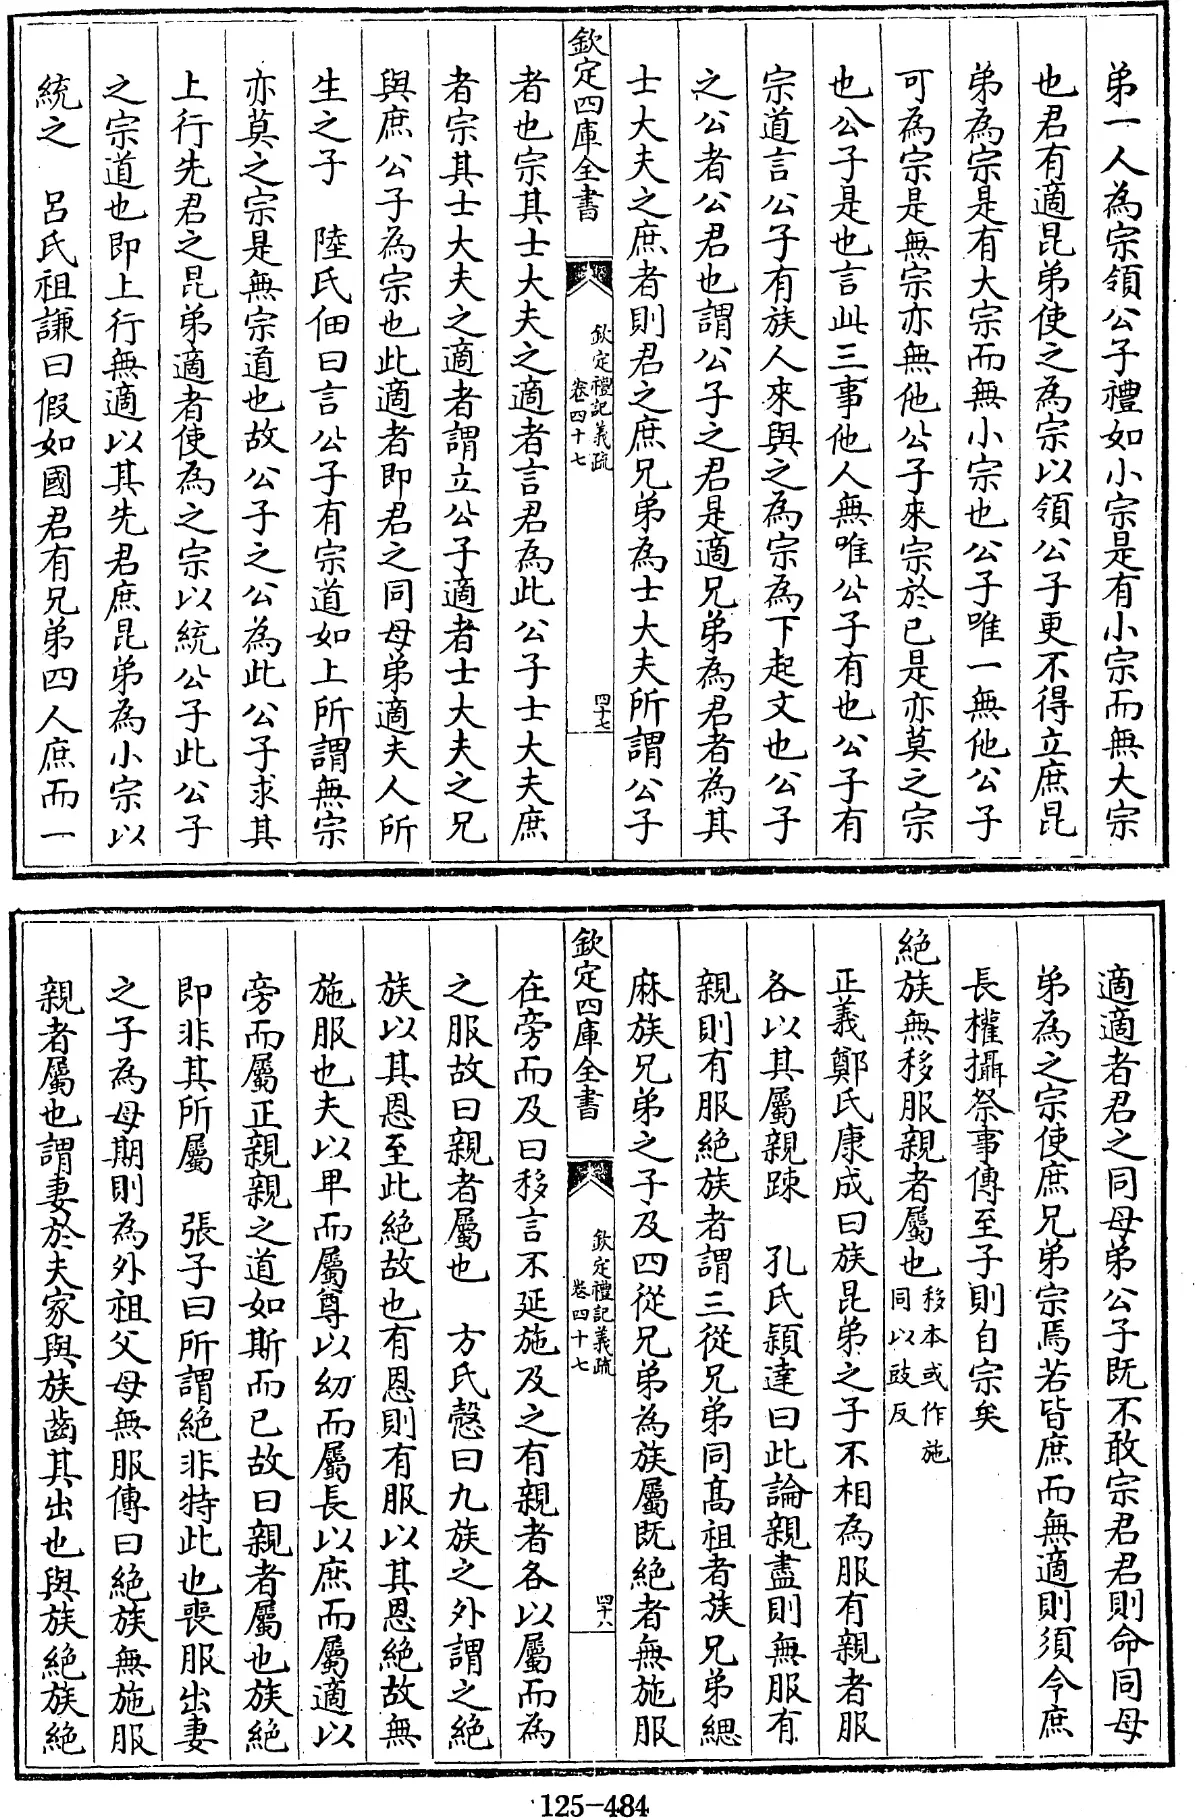 弟一人為宗領公子禮如小宗是有小宗而無大宗
也君有適昆弟使之為宗以領公子更不得立庶昆
弟為宗是有大宗而無小宗也公子唯一無他公子
可為宗是無宗亦無他公子來宗於已是亦莫之宗
也公子是也言此三事他人無唯公子有也公子有
宗道言公子有族人來與之為宗為下起文也公子
之公者公君也謂公子之君是適兄弟為君者為其
士大夫之庶者則君之庶兄弟為士大夫所謂公子
欽定四庫全書
欽定禮記義疏
卷四十七
四十七
者也宗其士大夫之適者言君為此公子士大夫庶
者宗其士大夫之適者謂立公子適者士大夫之兄
與庶公子為宗也此適者即君之同母弟適夫人所
生之子 陸氏佃曰言公子有宗道如上所謂無宗
亦莫之宗是無宗道也故公子之公為此公子求其
上行先君之昆弟適者使為之宗以統公子此公子
之宗道也即上行無適以其先君庶昆弟為小宗以
統之 呂氏祖謙曰假如國君有兄弟四人庶而一
適適者君之同母弟公子既不敢宗君君則命同母
弟為之宗使庶兄弟宗焉若皆庶而無適則須令庶
長權攝祭事傳至子則自宗矣
絶族無移服親者屬也移本或作施
同以豉反
正義鄭氏康成曰族昆弟之子不相為服有親者服
各以其屬親疎 孔氏穎達曰此論親盡則無服有
親則有服絶族者謂三從兄弟同髙祖者族兄弟緦
麻族兄弟之子及四從兄弟為族屬既絶者無施服
欽定四庫全書
欽定禮記義疏
卷四十七
四十八
在旁而及曰移言不延施及之有親者各以屬而為
之服故曰親者屬也 方氏慤曰九族之外謂之絶
族以其恩至此絶故也有恩則有服以其恩絶故無
施服也夫以卑而屬尊以幼而屬長以庶而屬適以
旁而屬正親親之道如斯而已故曰親者屬也族絶
即非其所屬 張子曰所謂絶非特此也喪服出妻
之子為母期則為外祖父母無服傳曰絶族無施服
親者屬也謂妻於夫家與族齒其出也與族絶族絶
125-484